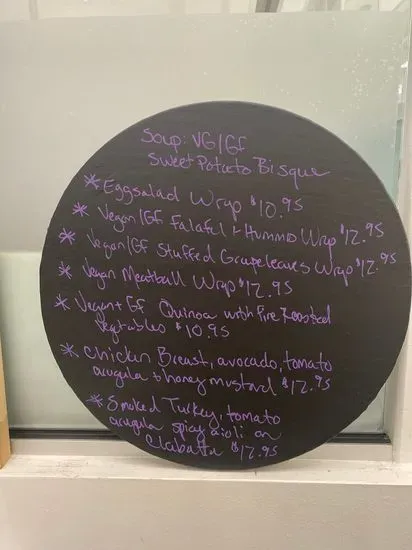 Soup: VG/GF
Sweet Potato Bisque
* Eggsalad Wrap $10.95
* Vegan/GF Falaful + Hummus Wrap $12.95
* Vegan/GF Stuffed Grapeleaves Wrap $12.95
* Vegan Meatball Wrap $12.95
* Vegan + GF Quinoa with Fire Roasted
Vegtables $10.95
* Chicken Breast, avocado, tomato
arugula + honey mustard $12.95
* Smoked Turkey, tomato
arugula spicy aioli on
Ciabatta $12.95